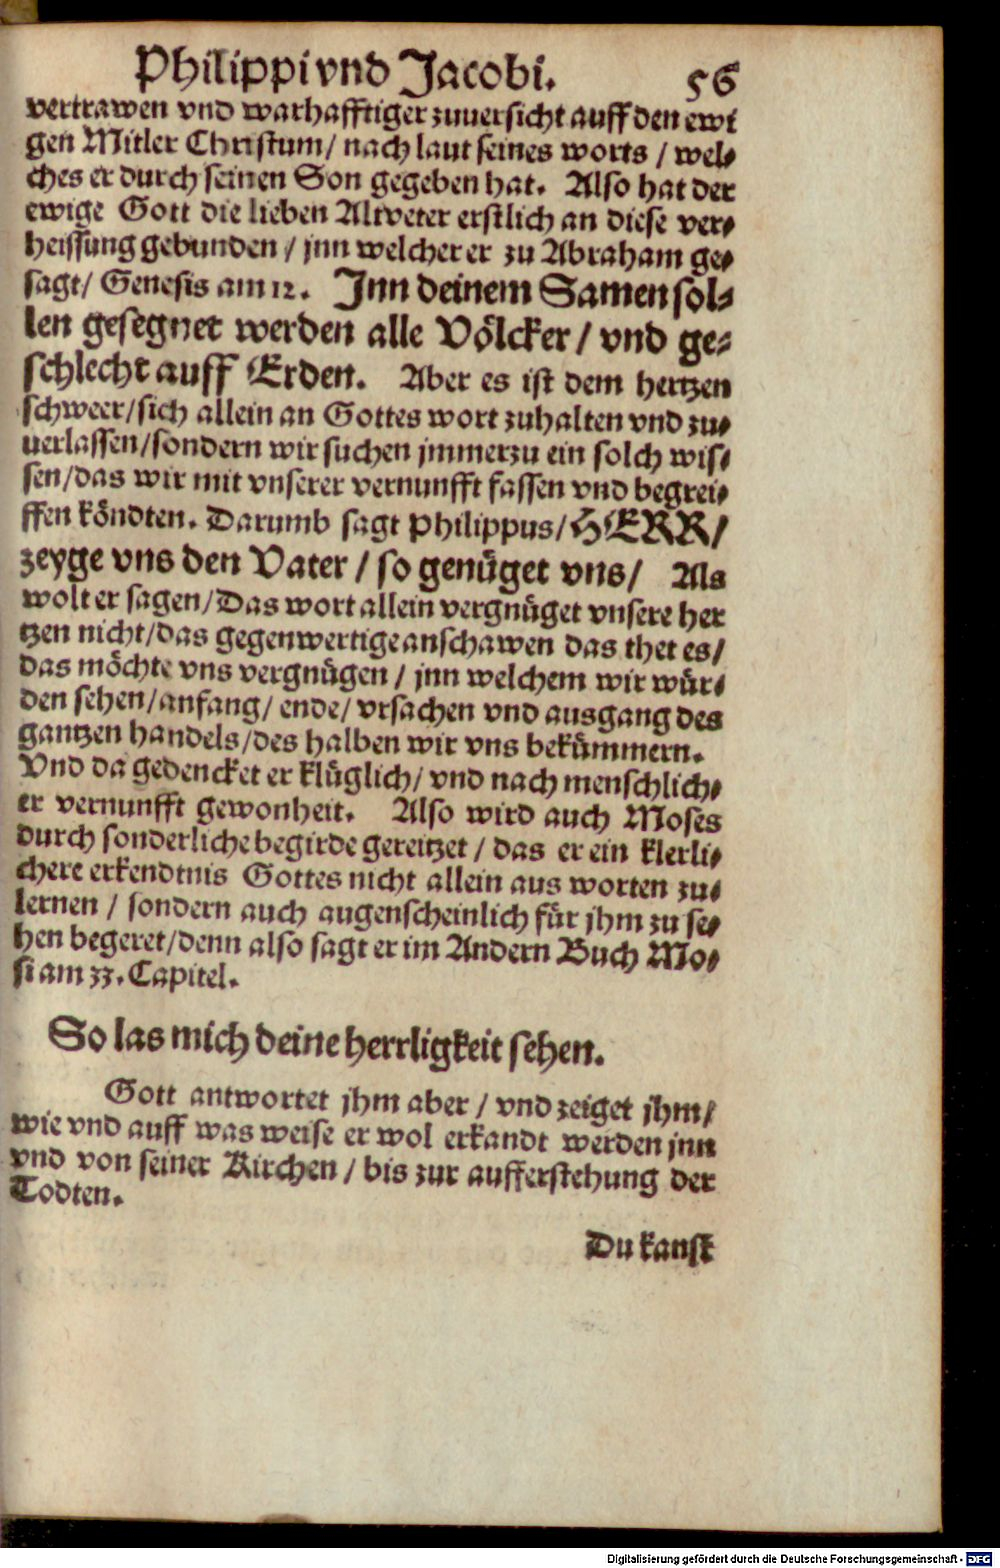 Philippi vnd Jacobi. 56
vertrawen vnd warhafftiger zuuersicht auff den ewi
gen Mitler Christum/ nach laut seines worts / wel⸗
ches er durch seinen Son gegeben hat. Also hat der
ewige Gott die lieben Altveter erstlich an diese ver⸗
heissung gebunden / jnn welcher er zu Abraham ge⸗
sagt/ Genesis am 12. Jnn deinem Samen sol⸗
len gesegnet werden alle Völcker / vnd ge⸗
schlecht auff Erden. Aber es ist dem hertzen
schweer/sich allein an Gottes wort zuhalten vnd zu⸗
uerlassen/sondern wir suchen jmmerzu ein solch wis⸗
sen/das wir mit vnserer vernunfft fassen vnd begrei⸗
ffen köndten. Darumb sagt Philippus/HERR/
zeyge vns den Vater / so genüget vns/ Als
wolt er sagen/Das wort allein vergnüget vnsere her
tzen nicht/das gegenwertige anschawen das thet es/
das möchte vns vergnügen / jnn welchem wir wür⸗
den sehen/anfang/ ende/ vrsachen vnd ausgang des
gantzen handels/des halben wir vns bekümmern.
Vnd da gedencket er klüglich/ vnd nach menschlich⸗
er vernunfft gewonheit. Also wird auch Moses
durch sonderliche begirde gereitzet / das er ein klerli⸗
chere erkendtnis Gottes nicht allein aus worten zu⸗
lernen / sondern auch augenscheinlich für jhm zu se⸗
hen begeret/denn also sagt er im Andern Buch Mo⸗
si am 33. Capitel.
So las mich deine herrligkeit sehen.
Gott antwortet jhm aber / vnd zeiget jhm/
wie vnd auff was weise er wol erkandt werden jnn
vnd von seiner Kirchen / bis zur aufferstehung der
Todten.
Du kanst
Digitalisierung gefördert durch die Deutsche Forschungsgemeinschaft - DFG